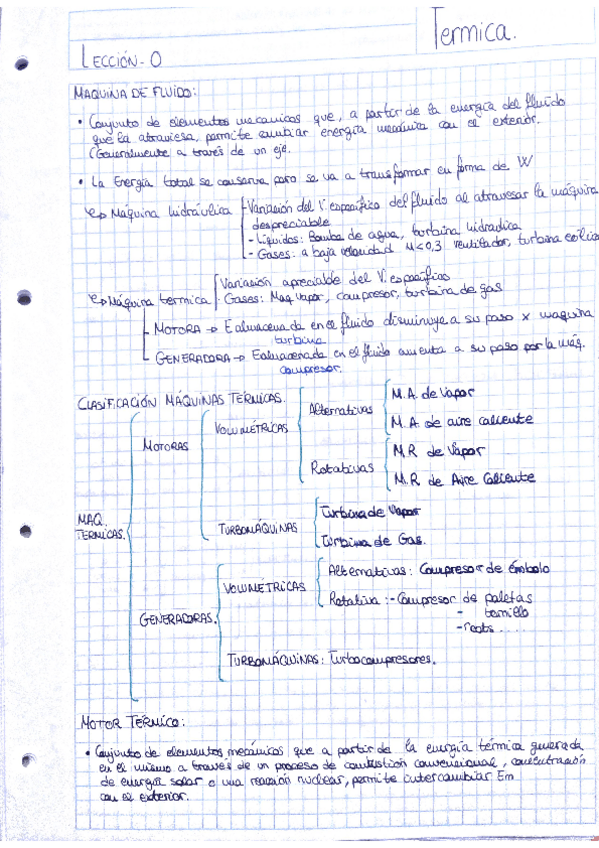 Termica.
LECCIÓN-0
MAQUINA DE FLUIDO:
• Conjunto de elementos mecanicos que, a partir de la energía del fluido
que la atraviesa, permite cambiar energía mecánica con el exterior.
(Generalmente a través de un eje.
• La Energía total se conserva, pero se va a transformar en forma de W
↳ Máquina hidráulica Variación del V. específico del fluido al atravesar la máquina
despreciable
- Líquidos: Bomba de agua, turbina hidraulica
- Gases: a baja velocidad M<0,3 ventilador, turbina eólica
↳ Máquina termica Variación apreciable del V. específico
- Gases: Maq vapor, compresor, turbina de gas
MOTORA → E almacenada en el fluido disminuye a su paso x maquina
turbina
GENERADORA → E almacenada en el fluido aumenta a su paso por la máq.
compresor.
CLASIFICACIÓN MÁQUINAS TÉRMICAS.
MAQ. TERMICAS.
MOTORAS
VOLUMÉTRICAS
Alternativas
M.A. de Vapor
M.A. de aire caliente
Rotativas
M.R. de Vapor
M.R. de Aire Caliente
TURBOMÁQUINAS
Turbina de Vapor
Turbina de Gas.
GENERADORAS.
VOLUMETRICAS
Alternativas: Compresor de émbolo
Rotativa: - Compresor de paletas
- tornillo
- roots.....
TURBOMÁQUINAS: Turbocompresores.
MOTOR TÉRMICO:
• Conjunto de elementos mecánicos que a partir de la energía térmica generada
en el mismo a través de un proceso de combustión convencional, concentración
de energía solar o una reacción nuclear, permite intercambiar Em
con el exterior.